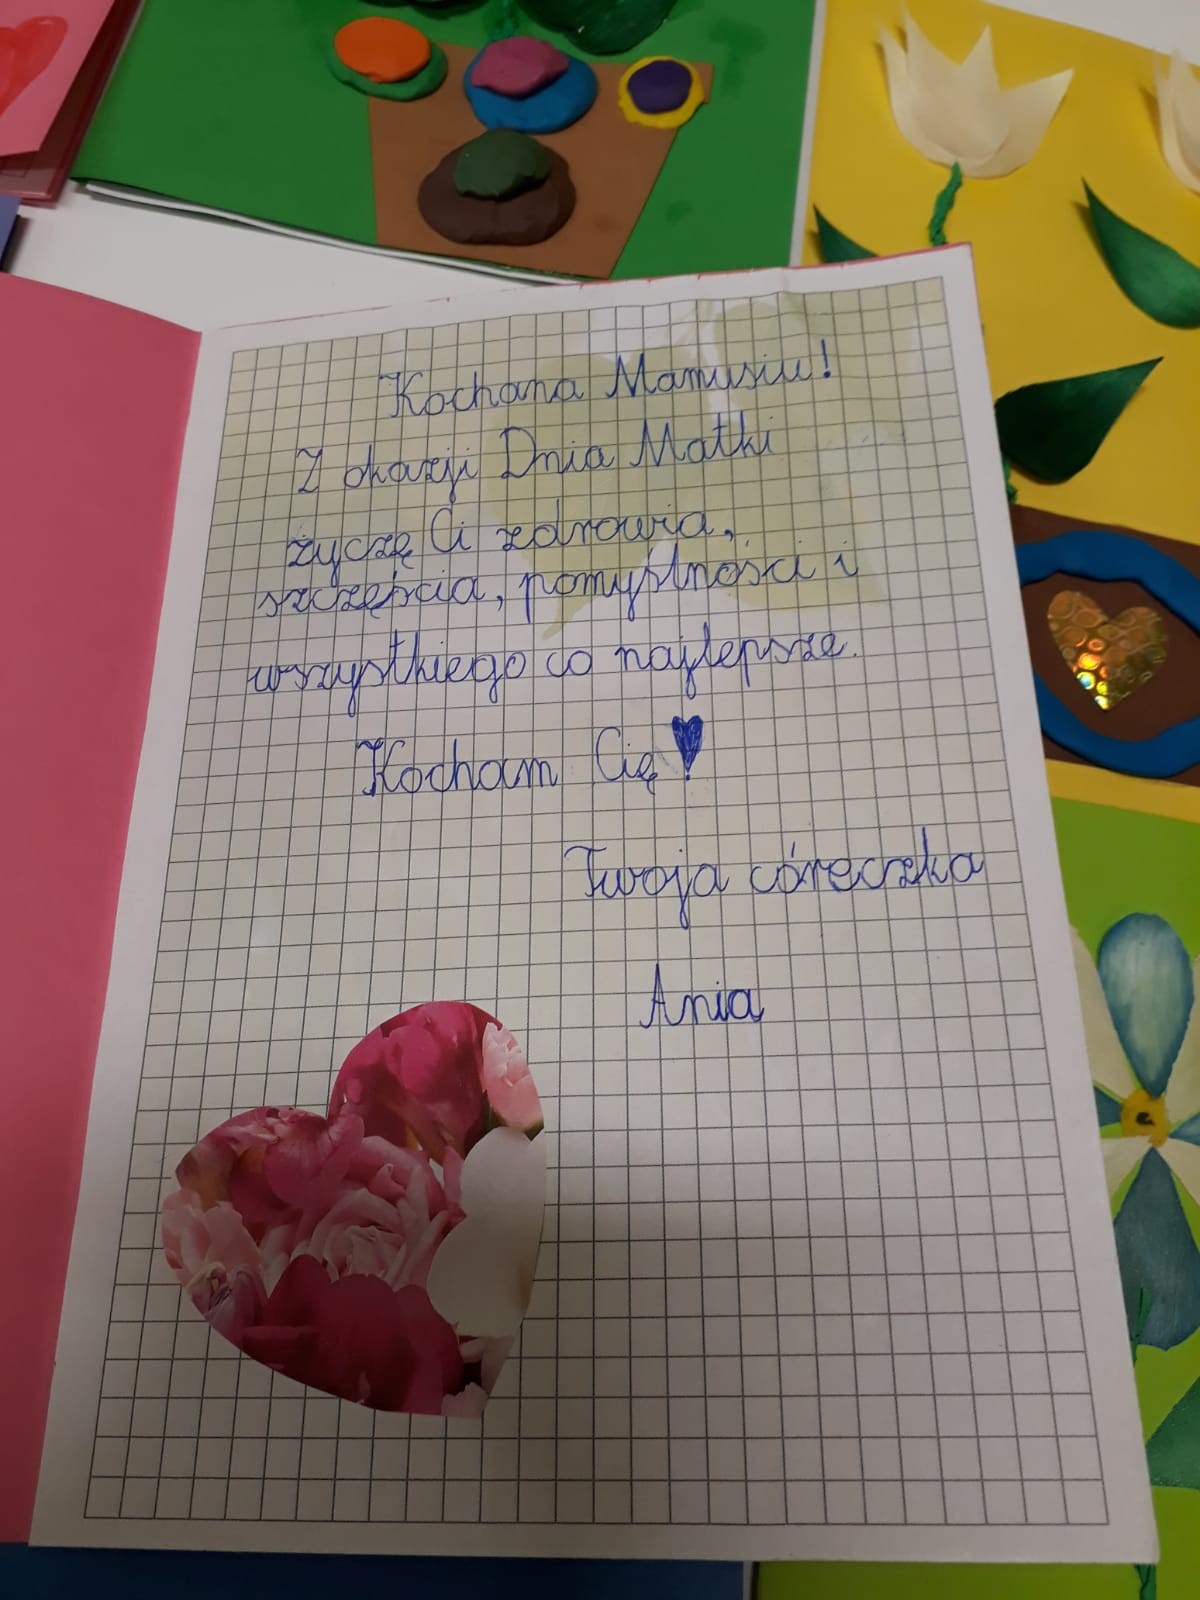 Kochana Mamusiu!
Z okazji Dnia Matki
życzę Ci zdrowia,
szczęścia, pomyślności i
wszystkiego co najlepsze.
Kocham Cię!
Twoja córeczka
Ania